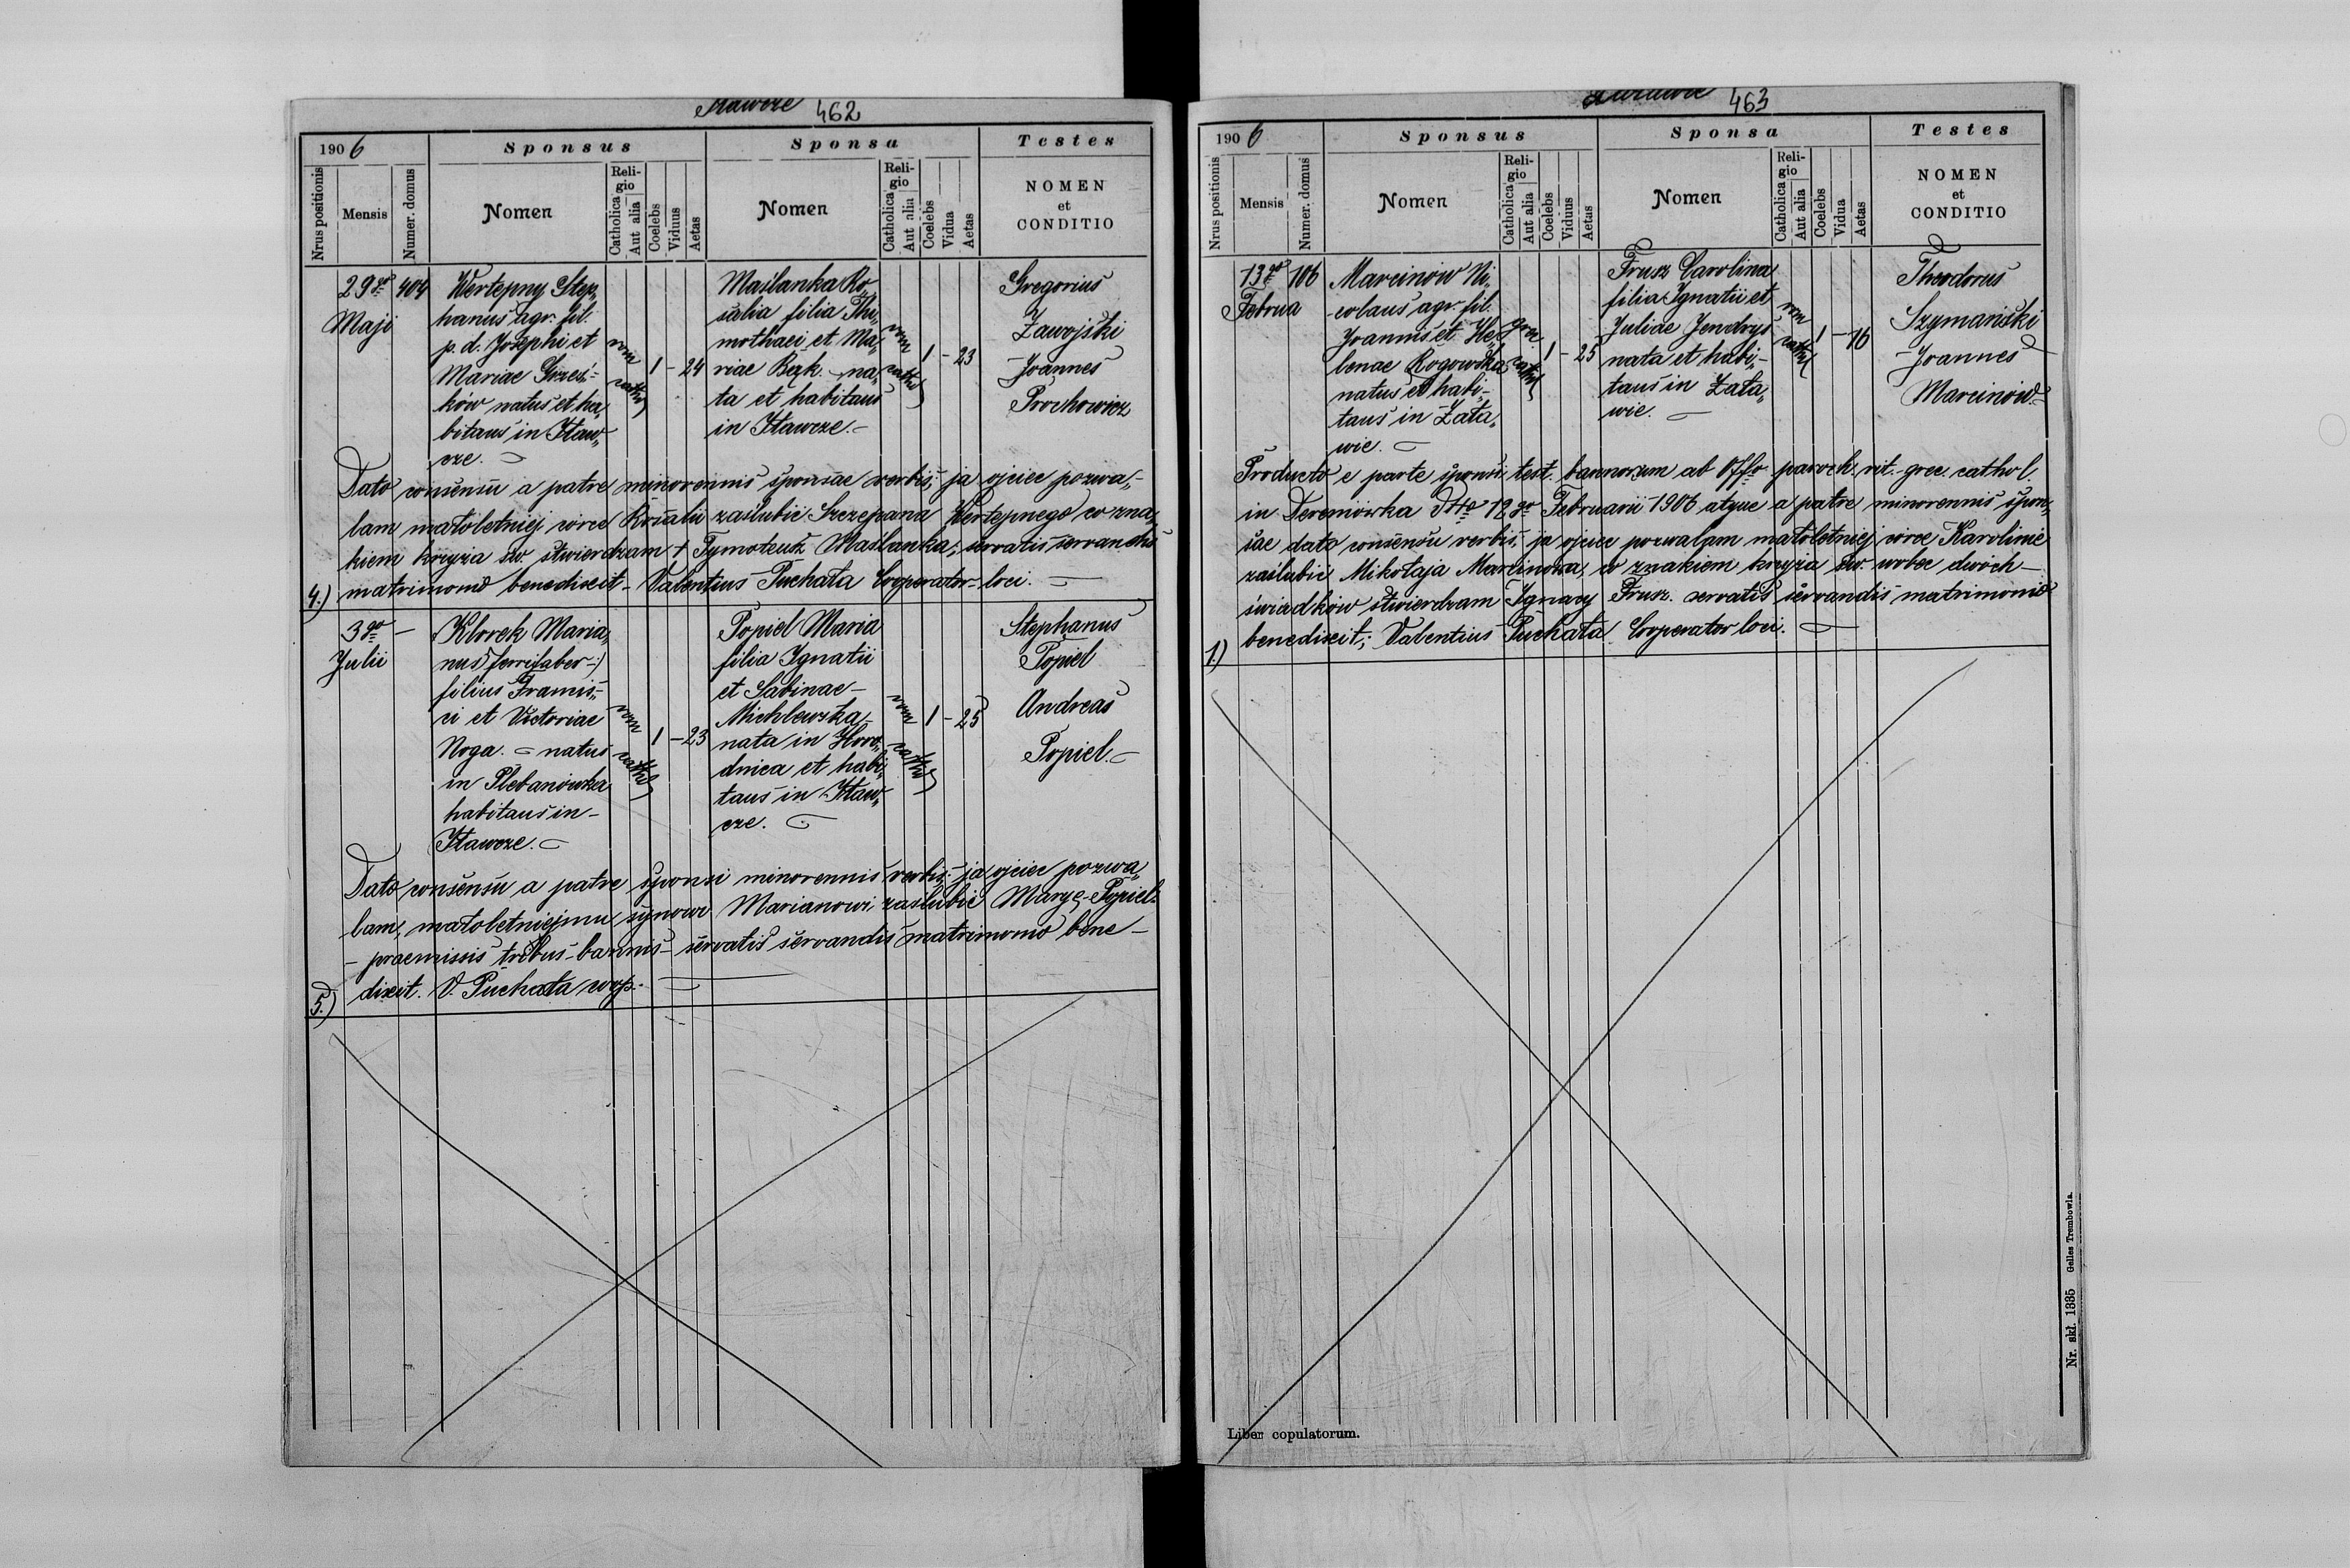 462
1906
Sponsus
Sponsa
Testes
Nrus positionis
Mensis
Numer. domus
Nomen
Religio
Catholica
Aut alia
Coelebs
Viduus
Aetas
Nomen
Religio
Catholica
Aut alia
Coelebs
Vidua
Aetas
NOMEN
et
CONDITIO
4.)
29go
Maji
404
Wertepny Step„
hanus agr. fil.
p. d. Josephi et
Mariae
ków natus et ha„
bitans in Staw„
cze.
rom
cathol
1 - 24
Maślanka Ro„
salia filia Thi„
mothaei et Ma„
riae Bąk. na„
ta et habitans
in Stawcze.
rom
cathol
1 - 23
Gregorius
Zawojski
Joannes
Prochowicz
Dato consensu a patre minorennis sponsae verbis; ja ojciec pozwa„
lam małoletniej córce Rozalii zaślubić Szczepana Wertepnego co zna„
kiem krzyża św. stwierdzam + Tymoteusz Maślanka; servatis servandis
matrimonio benedixit - Valentius Puchała Cooperator loci.
5.)
3go
Julii
—
Klorek Maria„
nus (ferrifaber:)
filius Francis„
ci et Victoriae
Noga. natus
in Plebanówka
habitans in
Stawcze.
rom
cathol
1 - 23
Popiel Maria
filia Ignatii
et Sabinae
Michlewska
nata in Horo„
dnica et habi„
tans in Staw„
cze.
rom
cathol
1 - 25
Stephanus
Popiel
Andreas
Popiel.
Dato consensu a patre sponsi minorennis verbis; ja ojciec pozwa„
lam, małoletniejmu synowi Marianowi zaślubić Maryę Popiel
- praemissis tribus bannis - servatis servandis matrimonio bene-
dixit. V. Puchała coop.
463
1906
Sponsus
Sponsa
Testes
Nrus positionis
Mensis
Numer. domus
Nomen
Religio
Catholica
Aut alia
Coelebs
Viduus
Aetas
Nomen
Religio
Catholica
Aut alia
Coelebs
Vidua
Aetas
NOMEN
et
CONDITIO
1.)
13go
Februa
106
Marcinów Ni„
colaus agr. fil.
Joannis et He„
lenae Rogowska
natus et habi„
tans in Zała„
wie.
grec
cathol
1 - 25
Frusz Carolina
filia Ignatii et
Juliae Jendrys
nata et habi„
tans in Zała„
wie.
rom
cathol
1 - 16
Theodorus
Szymański
Joannes
Marcinów
Producto e parte sponsi test. bannorum ab Offo paroch. rit. grec. cathol.
in Dereniówka dtto 12go Februarii 1906 atque a patre minorennis spon„
sae dato consensu verbis; ja ojciec pozwalam małoletniej córce Karolinie
zaślubić Mikołaja Marcinowa, co znakiem krzyża św. wobec dwóch
świadków stwierdzam Ignacy Frusz. servatis servandis matrimonio
benedixit; Valentius Puchała Cooperator loci.
Liber copulatorum.
Nr. skł. 1335 Gelles Trembowla.